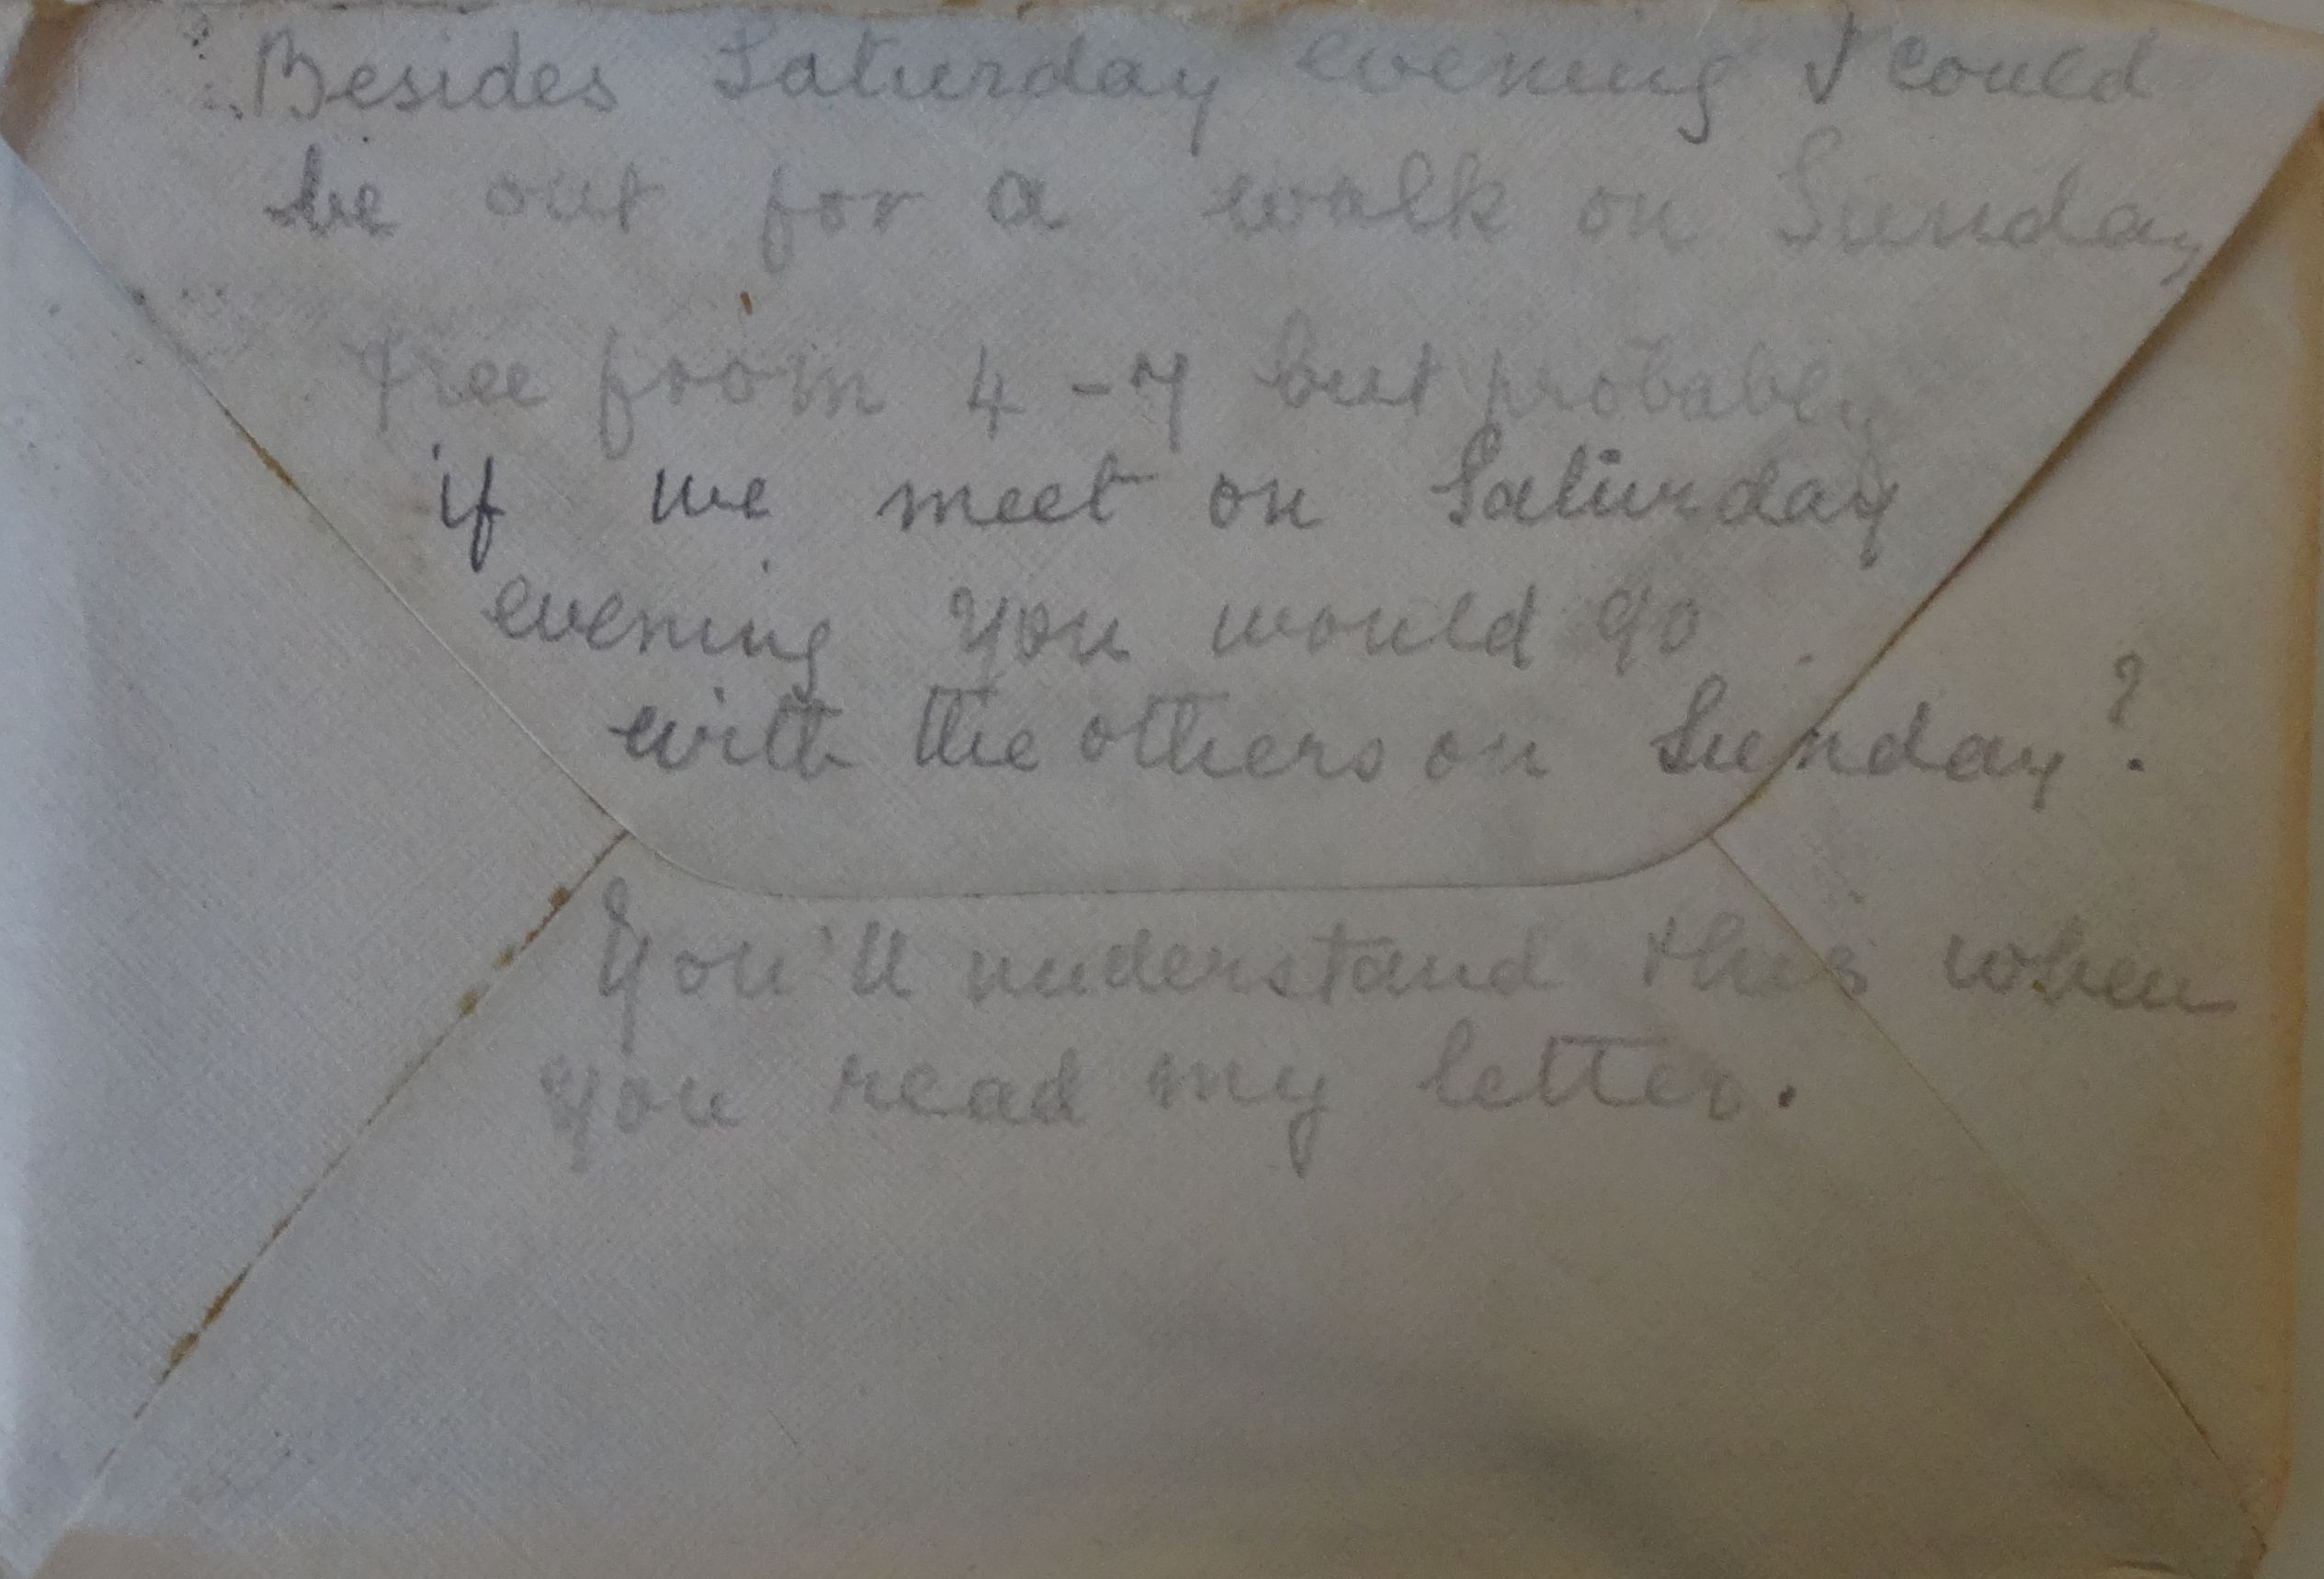 Besides Saturday evening I could
be out for a walk on Sunday
free from 4-7 but probably
if we meet on Saturday
evening you would go
with the others on Sunday?
You'll understand this when
you read my letter.